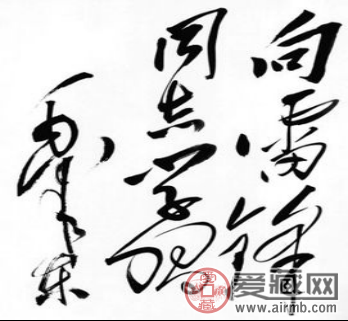 向雷锋
同志学习
毛泽东
爱藏网
www.airmb.com